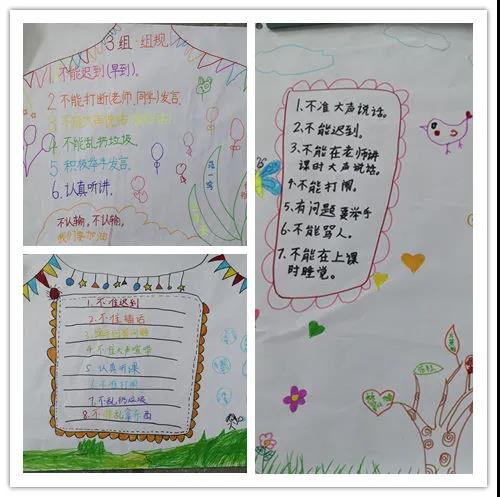 3组·组规
1.不能迟到(早到)。
2.不能打断(老师、同学)发言。
3.不能大声
4.不能乱扔垃圾。
5.积极举手发言。
6.认真听讲。
不认输,不认输,
我们要加油
1.不准迟到
2.不准插话
3.举手回答问题
4.不准大声喧哗
5.认真听课
6.不准打闹
7.不乱扔垃圾
8.不准乱拿东西
1.不准大声说话。
2.不能迟到。
3.不能在老师讲
课时大声说话。
4.不能打闹。
5.有问题要举手
6.不能骂人。
7.不能在上课
时睡觉。